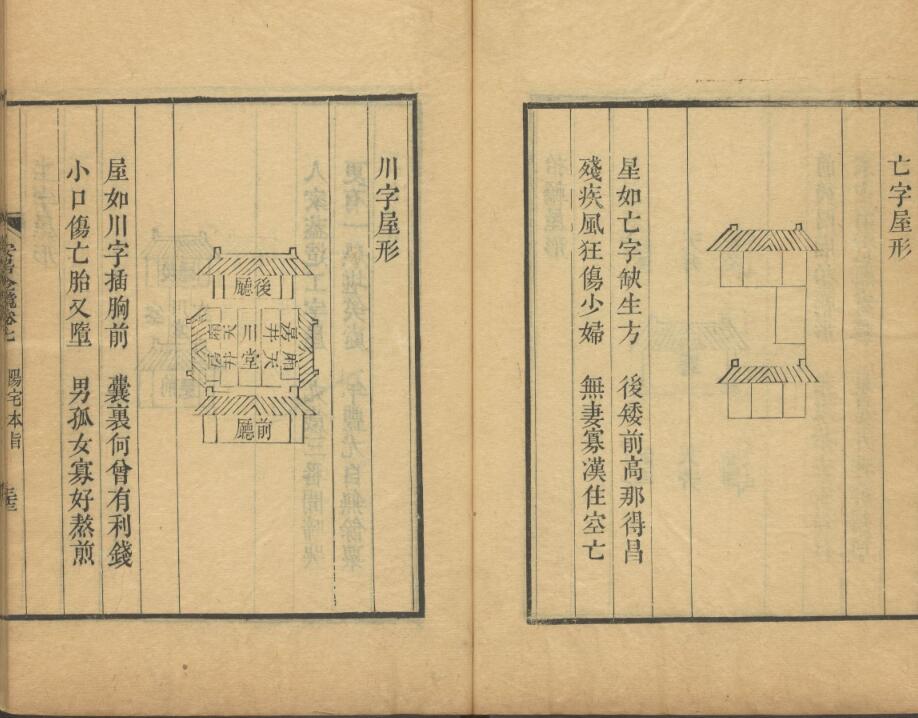 亡字屋形
星如亡字缺生方　後矮前高那得昌
殘疾風狂傷少婦　無妻寡漢住空亡
川字屋形
後廳
天井
川堂
天井
前廳
屋如川字插胸前　囊裏何曾有利錢
小口傷亡胎又墮　男孤女寡好熬煎
陽宅本旨